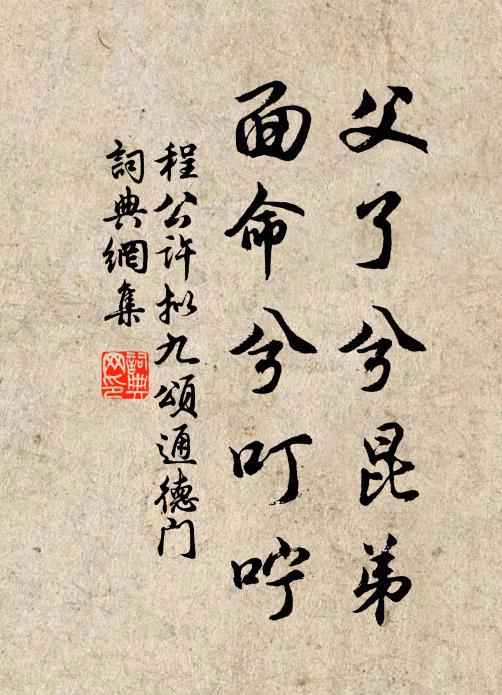 父了兮昆弟
面命兮叮咛
程公许拟九頌通德门
詞典網集
詞典網印